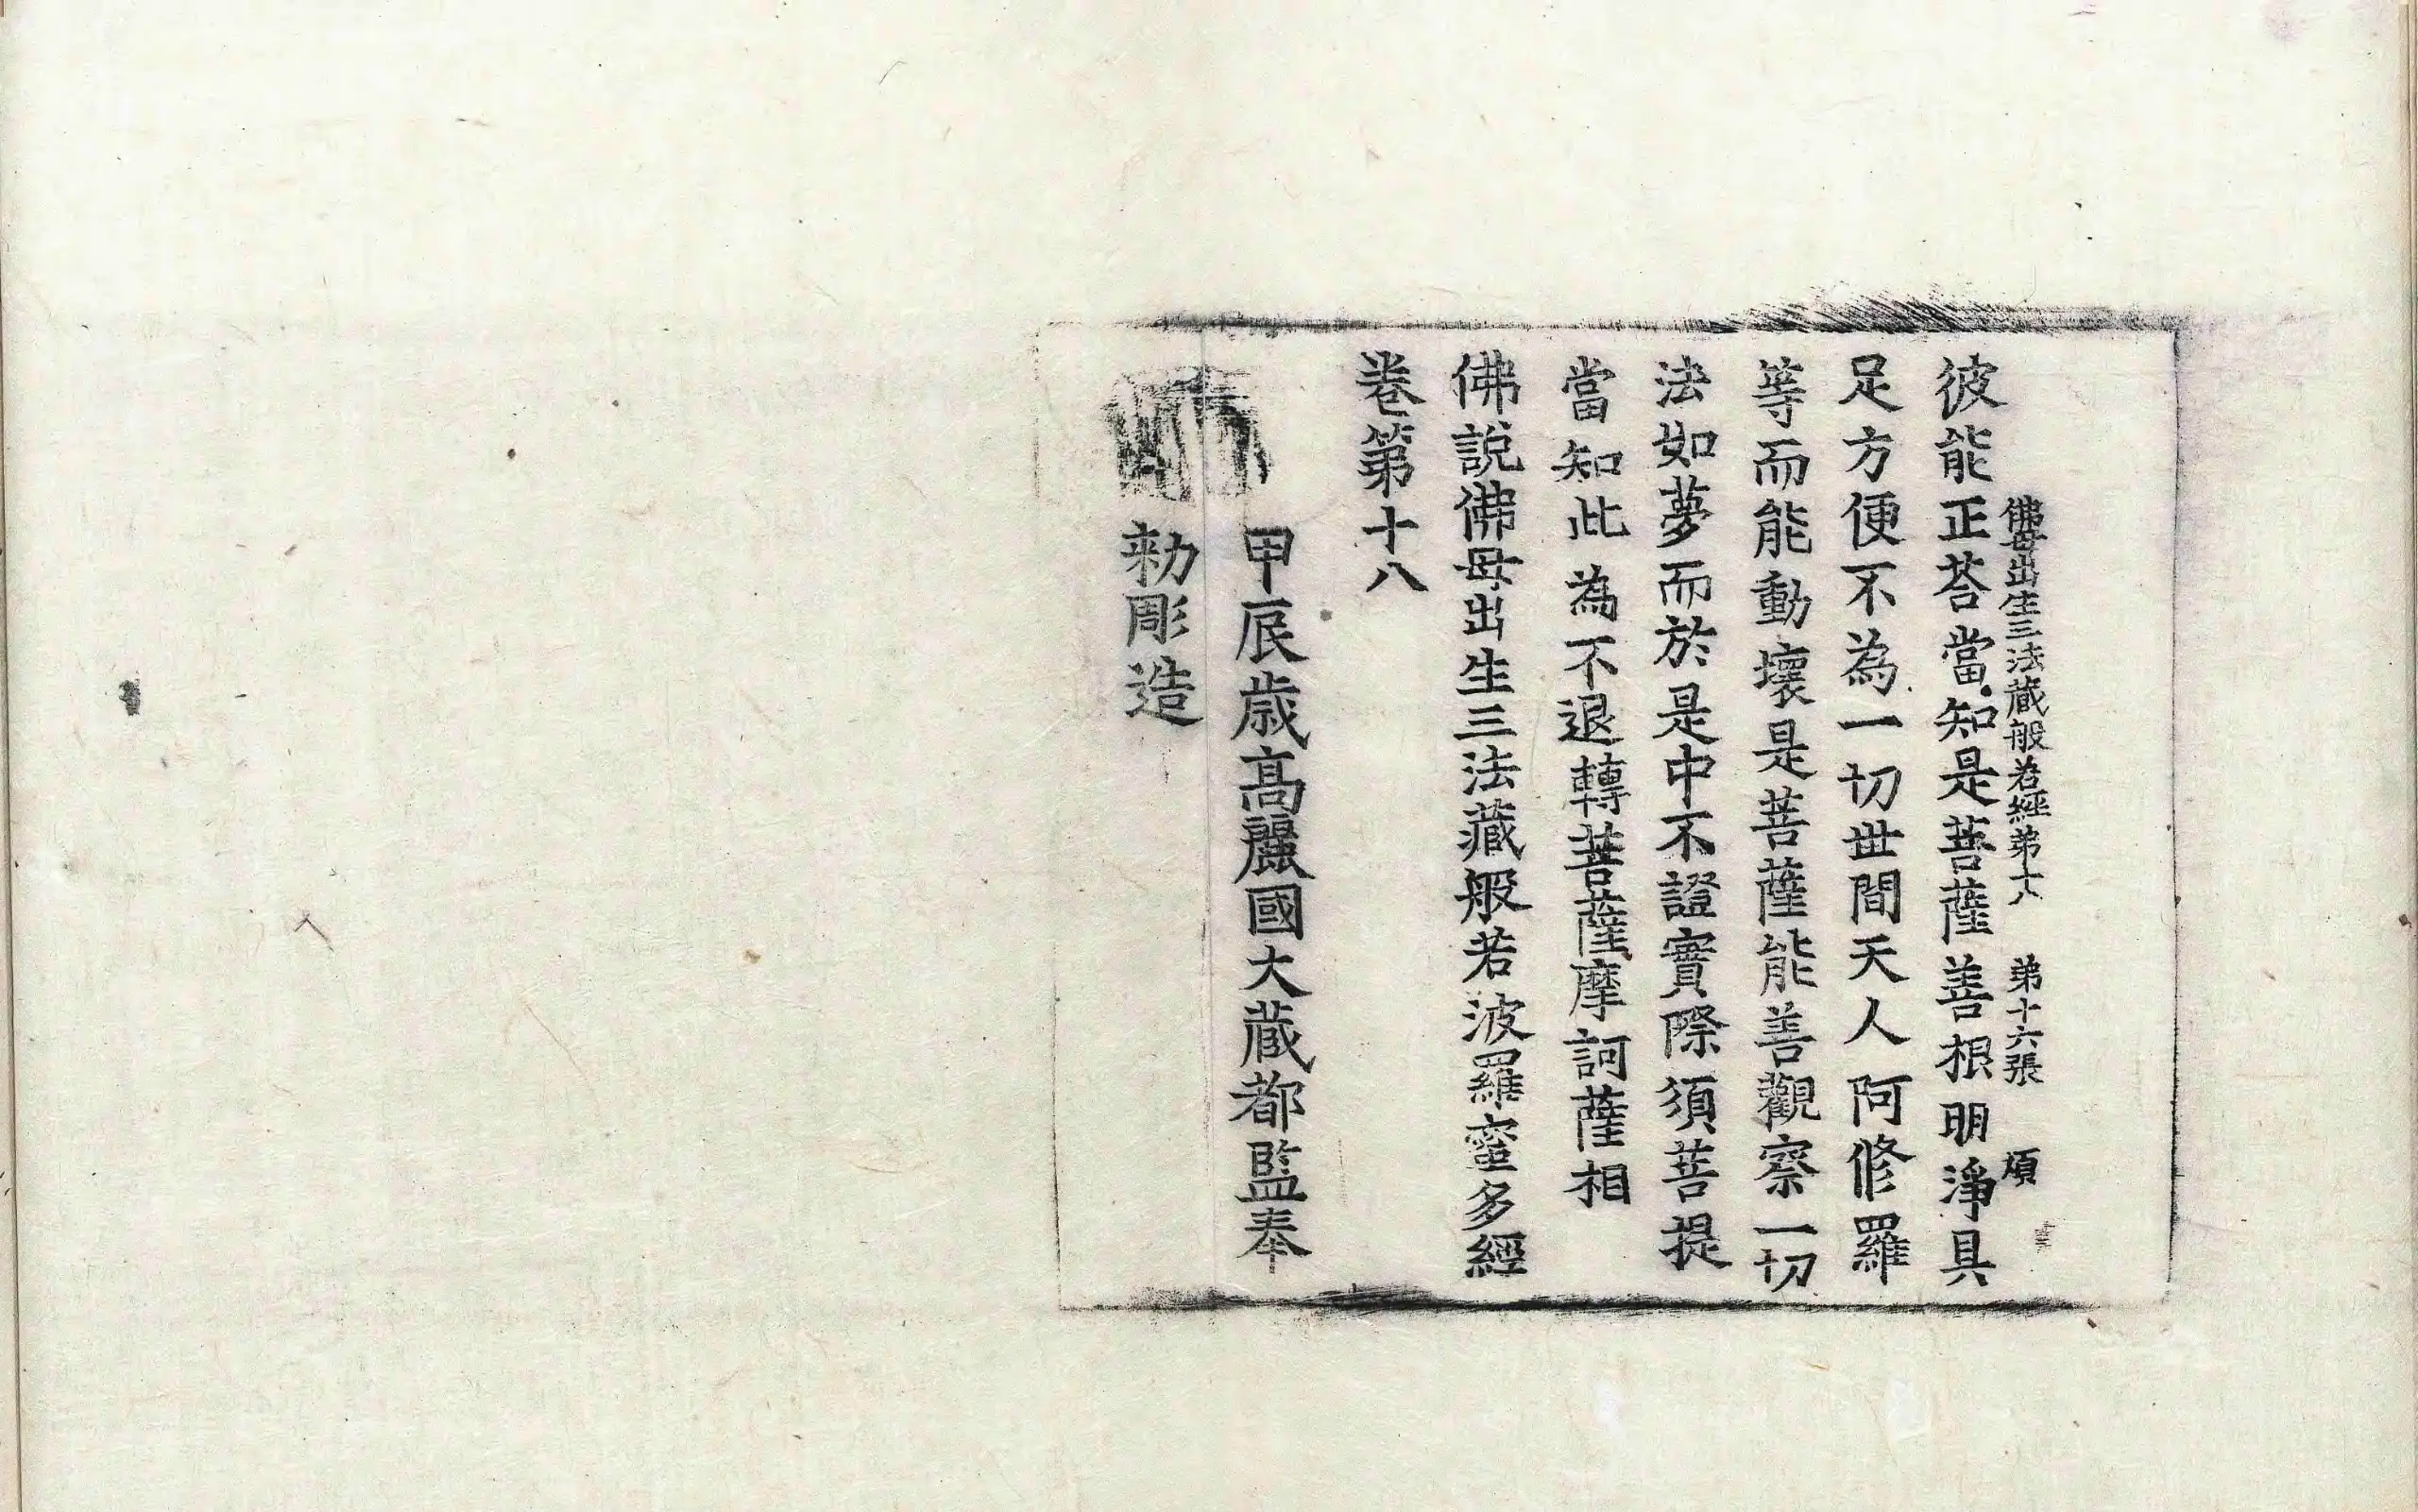 佛母出生三法藏般若經第十八　第十六張　頃
彼能正荅當知是菩薩善根明淨具
足方便不為一切世間天人阿修羅
等而能動壞是菩薩能善觀察一切
法如夢而於是中不證實際須菩提
當知此為不退轉菩薩摩訶薩相
佛說佛母出生三法藏般若波羅蜜多經
卷第十八
甲辰歲高麗國大藏都監奉
勑彫造